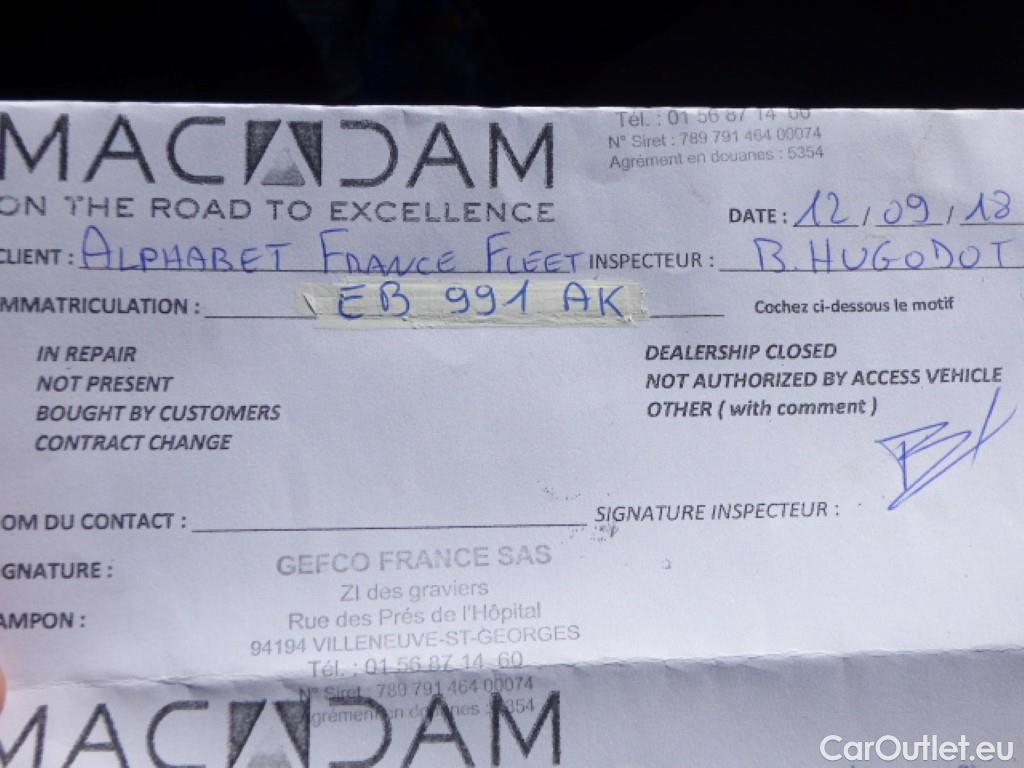 Tél. : 01 56 87 14 60
N° Siret : 789 791 464 00074
Agrément en douanes : 5354
MACADAM
ON THE ROAD TO EXCELLENCE
DATE : 12 / 09 / 18
CLIENT : ALPHABET FRANCE FLEET INSPECTEUR : B. HUGODOT
MMATRICULATION : EB 991 AK Cochez ci-dessous le motif
IN REPAIR DEALERSHIP CLOSED
NOT PRESENT NOT AUTHORIZED BY ACCESS VEHICLE
BOUGHT BY CUSTOMERS OTHER ( with comment )
CONTRACT CHANGE
OM DU CONTACT : SIGNATURE INSPECTEUR :
GNATURE :
AMPON :
GEFCO FRANCE SAS
ZI des graviers
Rue des Prés de l'Hôpital
94194 VILLENEUVE-ST-GEORGES
Tél. : 01 56 87 14 60
N° Siret : 789 791 464 00074
Agrément en douanes : 5354
MACADAM
CarOutlet.eu